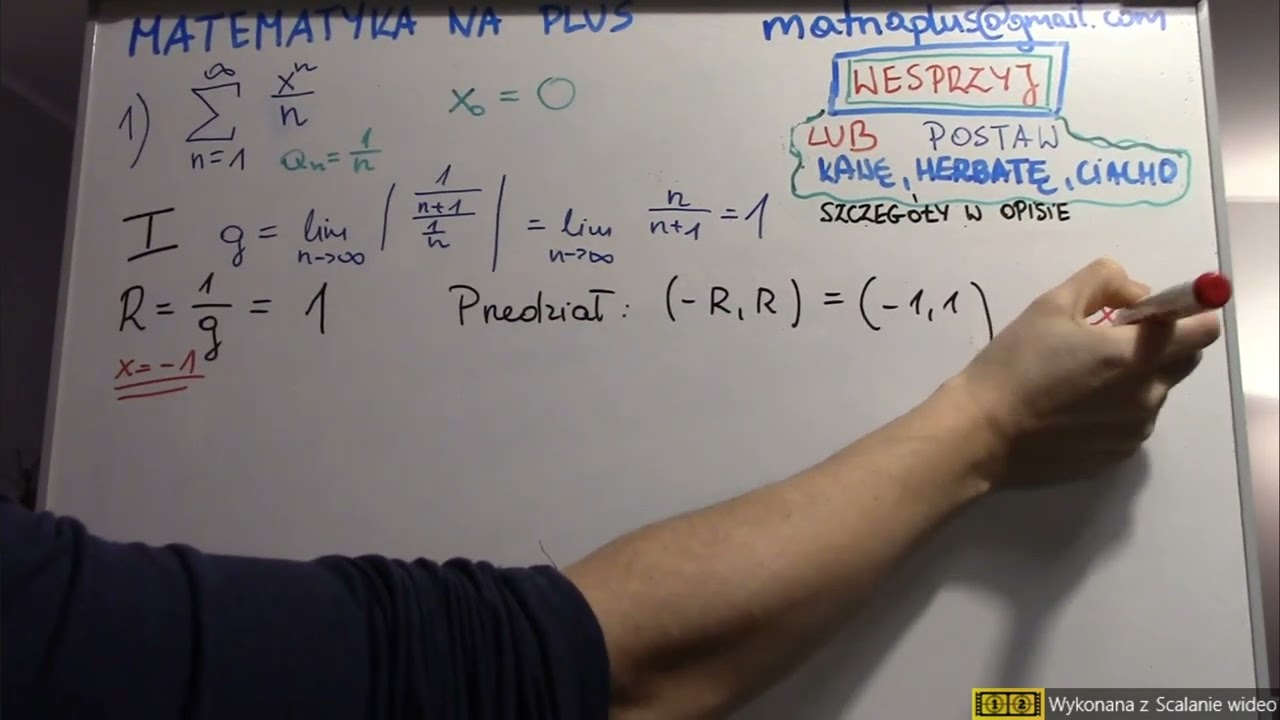 MATEMATYKA NA PLUS
matnaplus@gmail.com
WESPRZYJ
LUB POSTAW
KAWĘ, HERBATĘ, CIACHO
SZCZEGÓŁY W OPISIE
1) ∞ Σ n=1 xⁿ/n x₀ = 0
aₙ = 1/n
I g = lim n->∞ | (1/(n+1))/(1/n) | = lim n->∞ n/(n+1) = 1
R = 1/g = 1 Przedział: (-R, R) = (-1, 1)
x = -1
x
Wykonana z Scalanie wideo